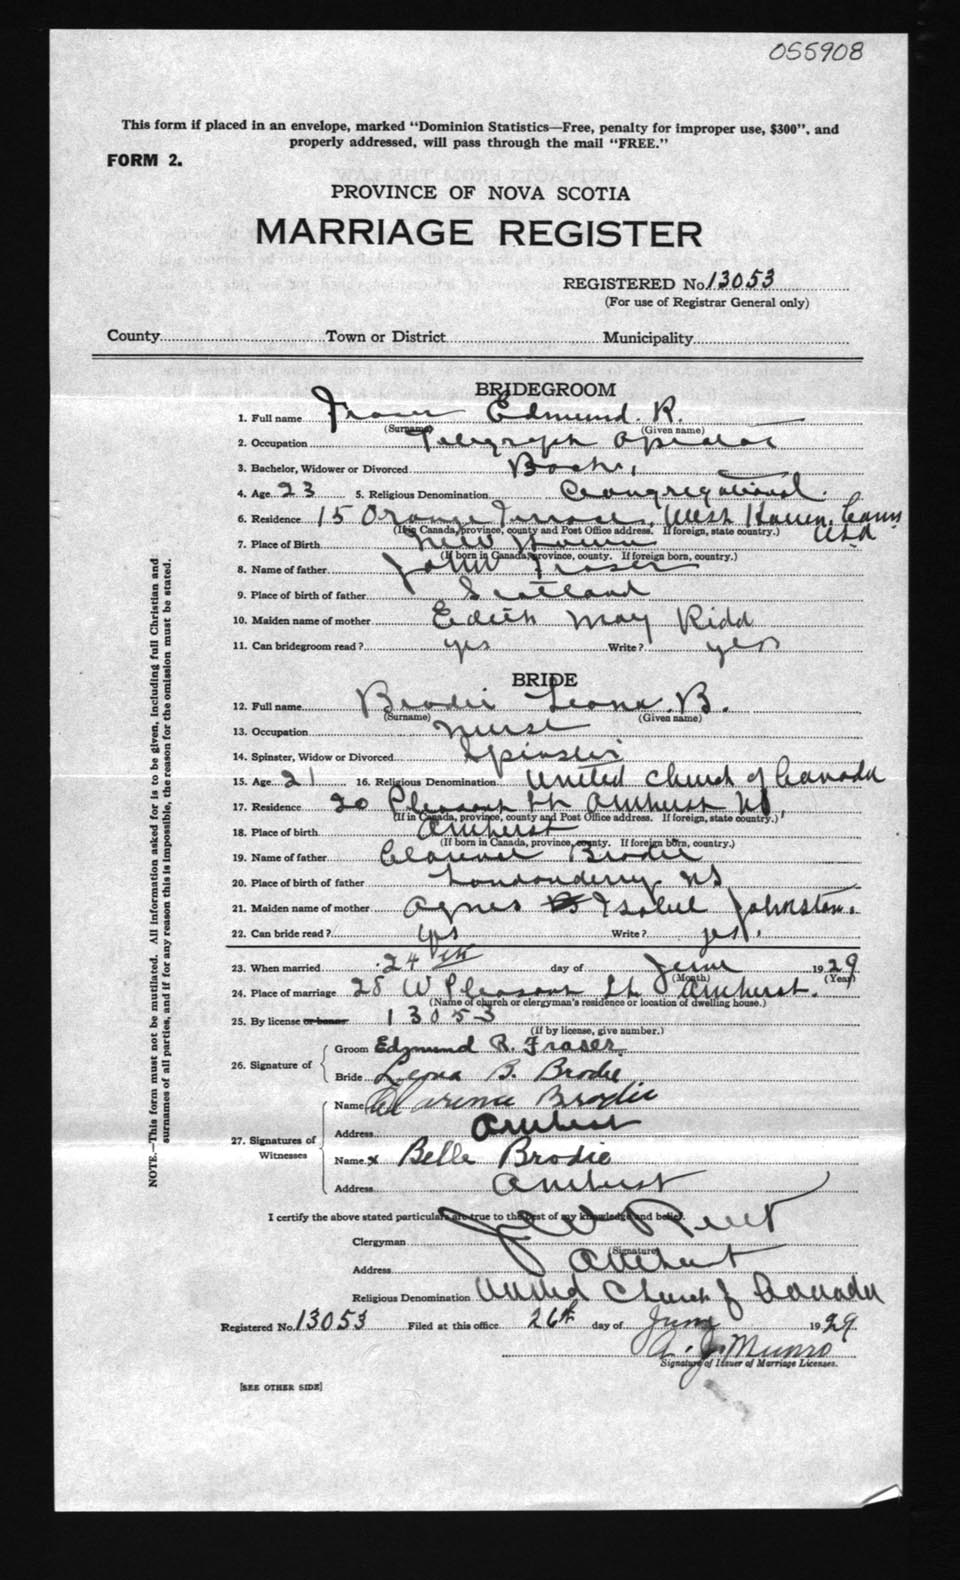 055908
This form if placed in an envelope, marked "Dominion Statistics—Free, penalty for improper use, $300", and
properly addressed, will pass through the mail "FREE."
FORM 2.
PROVINCE OF NOVA SCOTIA
MARRIAGE REGISTER
REGISTERED No. 13053
(For use of Registrar General only)
County Town or District Municipality
BRIDEGROOM
1. Full name Fraser Edmund R.
(Surname) (Given name)
2. Occupation Telegraph Operator
3. Bachelor, Widower or Divorced Bach.
4. Age 23 5. Religious Denomination Congregational.
6. Residence 15 Orange Terrace, West Haven, Conn
(If in Canada, province, county and Post Office address. If foreign, state country.) USA
7. Place of Birth New Haven
(If born in Canada, province, county. If foreign born, country.)
8. Name of father John Fraser
9. Place of birth of father Scotland
10. Maiden name of mother Edith May Kidd
11. Can bridegroom read? yes Write? yes
BRIDE
12. Full name Brodie Leona B.
(Surname) (Given name)
13. Occupation Nurse
14. Spinster, Widow or Divorced Spinster
15. Age 21 16. Religious Denomination United Church of Canada
17. Residence 20 Pleasant St Amherst NS,
(If in Canada, province, county and Post Office address. If foreign, state country.)
18. Place of birth Amherst
(If born in Canada, province, county. If foreign born, country.)
19. Name of father Clarence Brodie
20. Place of birth of father Londonderry NS
21. Maiden name of mother Agnes Isabel Johnston.
22. Can bride read? yes Write? yes.
23. When married 24th day of June 1929
(Month) (Year)
24. Place of marriage 28 W Pleasant St Amherst.
(Name of church or clergyman's residence or location of dwelling house.)
25. By license or banns 13053
(If by license, give number.)
26. Signature of Groom Edmund R. Fraser.
Bride Leona B. Brodie
27. Signatures of Witnesses Name Clarence Brodie
Address Amherst
Name x Belle Brodie
Address Amherst
I certify the above stated particulars are true to the best of my knowledge and belief.
Clergyman J W
(Signature)
Address Amherst
Religious Denomination United Church of Canada
Registered No. 13053 Filed at this office 26th day of June 1929
A. J. Munro
Signature of Issuer of Marriage Licenses.
[SEE OTHER SIDE]
NOTE.—This form must not be mutilated. All information asked for is to be given, including full Christian and
surnames of all parties, and if for any reason this is impossible, the reason for the omission must be stated.